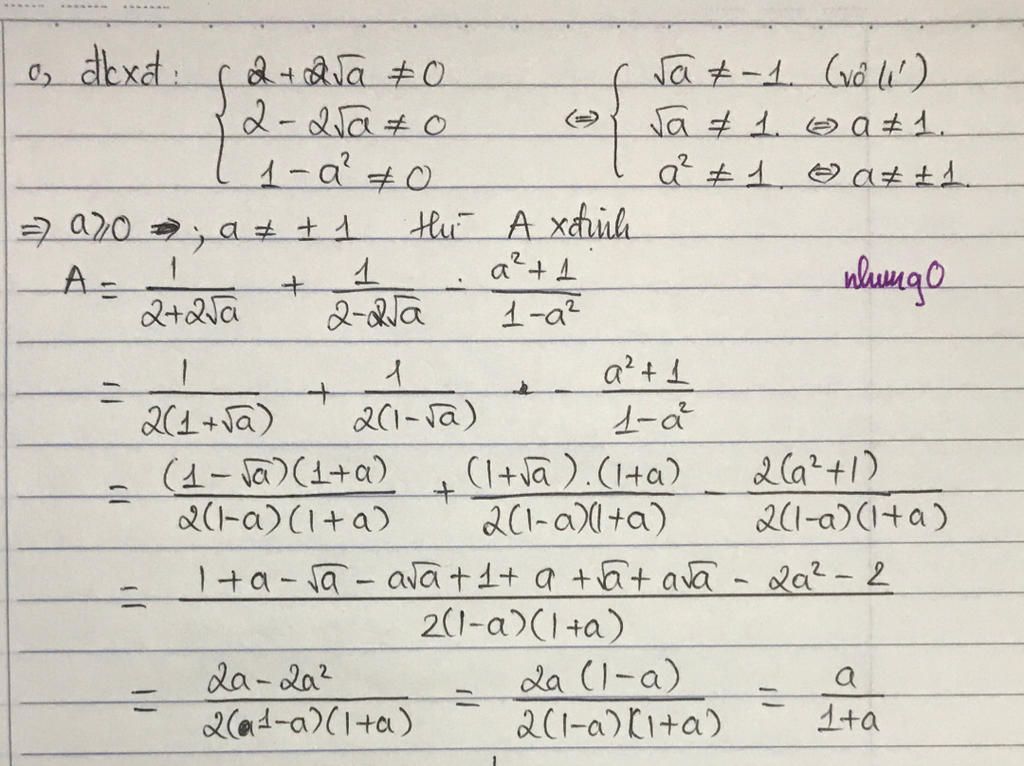 o, đkxđ: { 2 + 2√a ≠ 0 ⇔ { √a ≠ -1. (vô lí)
2 - 2√a ≠ 0 √a ≠ 1. ⇔ a ≠ 1.
1 - a² ≠ 0 a² ≠ 1. ⇔ a ≠ ±1.
⇒ a ≥ 0 ; a ≠ ± 1 thì A xđịnh
A = 1/(2+2√a) + 1/(2-2√a) - (a²+1)/(1-a²)
= 1/(2(1+√a)) + 1/(2(1-√a)) - (a²+1)/(1-a²)
= (1-√a)(1+a)/(2(1-a)(1+a)) + (1+√a).(1+a)/(2(1-a)(1+a)) - 2(a²+1)/(2(1-a)(1+a))
= (1+a-√a-a√a+1+a+√a+a√a-2a²-2)/(2(1-a)(1+a))
= (2a-2a²)/(2(1-a)(1+a)) = 2a(1-a)/(2(1-a)(1+a)) = a/(1+a)